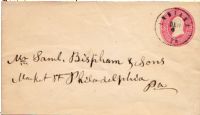 Mr. Saml. Bispham & Sons
Market St Philadelphia
Pa